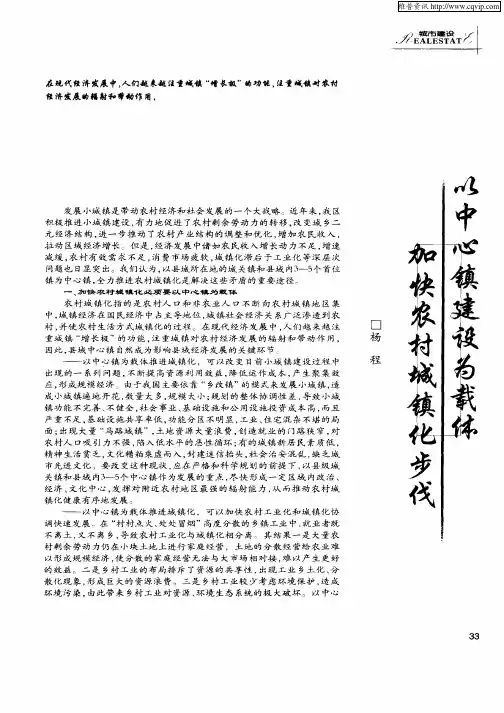 维普资讯 http://www.cqvip.com
城市建设
REALESTATE
在现代经济发展中,人们越来越注重城镇“增长极”的功能,注重城镇对农村
经济发展的辐射和带动作用,
以中心镇建设为载体
加快农村城镇化步伐
□杨 程
发展小城镇是带动农村经济和社会发展的一个大战略。近年来,我区
积极推进小城镇建设,有力地促进了农村剩余劳动力的转移,改变城乡二
元经济结构,进一步推动了农村产业结构的调整和优化,增加农民收入,
拉动区域经济增长。但是,经济发展中诸如农民收入增长动力不足,增速
减缓,农村有效需求不足,消费市场疲软,城镇化滞后于工业化等深层次
问题也日显突出。我们认为,以县城所在地的城关镇和县域内3—5个首位
镇为中心镇,全力推进农村城镇化是解决这些矛盾的重要途径。
一、加快农村城镇化必须要以中心镇为载体
农村城镇化指的是农村人口和非农业人口不断向农村城镇地区集
中,城镇经济在国民经济中占主导地位,城镇社会经济关系广泛渗透到农
村,并使农村生活方式城镇化的过程。在现代经济发展中,人们越来越注
重城镇“增长极”的功能,注重城镇对农村经济发展的辐射和带动作用,
因此,县城中心镇自然成为影响县域经济发展的关键环节。
——以中心镇为载体推进城镇化,可以改变目前小城镇建设过程中
出现的一系列问题,不断提高资源利用效益,降低运作成本,产生聚集效
应,形成规模经济。由于我国主要依靠“乡改镇”的模式来发展小城镇,造
成小城镇遍地开花,数量太多,规模太小;规划的整体协调性差,导致小城
镇功能不完善、不健全,社会事业、基础设施和公用设施投资成本高,而且
严重不足,基础设施共享率低,功能分区不明显,工业、住宅混杂不堪的局
面;出现大量“马路城镇”,土地资源大量浪费,创造就业的门路狭窄,对
农村人口吸引力不强,陷入低水平的恶性循环;有的城镇新居民素质低,
精神生活贫乏,文化糟粕乘虚而入,封建迷信抬头,社会治安混乱,缺乏城
市先进文化。要改变这种现状,应在严格和科学规划的前提下,以县级城
关镇和县域内3—5个中心镇作为发展的重点,尽快形成一定区域内政治、
经济、文化中心,发挥对附近农村地区最强的辐射能力,从而推动农村城
镇化健康有序地发展。
——以中心镇为载体推进城镇化,可以加快农村工业化和城镇化协
调快速发展。在“村村点火、处处冒烟”高度分散的乡镇工业中,就业者既
不离土,又不离乡,导致农村工业化与城镇化相分离。其结果一是大量农
村剩余劳动力仍在小块土地上进行家庭经营,土地的分散经营给农业难
以形成规模经济,使分散的家庭经营无法与大市场相对接,难以产生更好
的效益。二是乡村工业的布局排斥了资源的共享性,出现工业乡土化、分
散化现象,形成巨大的资源浪费。三是乡村工业较少考虑环境保护,造成
环境污染,由此带来乡村工业对资源、环境生态系统的极大破坏。以中心
33